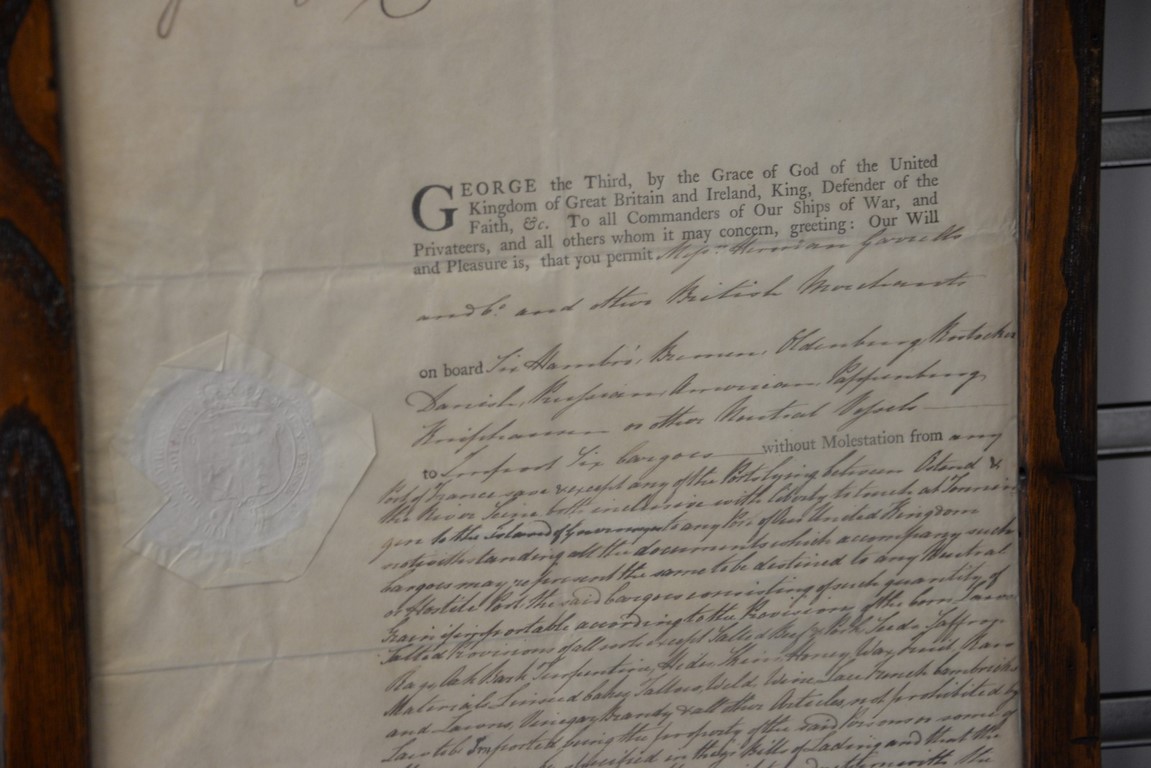 GEORGE the Third, by the Grace of God of the United
Kingdom of Great Britain and Ireland, King, Defender of the
Faith, &c. To all Commanders of Our Ships of War, and
Privateers, and all others whom it may concern, greeting: Our Will
and Pleasure is, that you permit Messrs. Herman
and Co. and other British Merchants
on board Six Hambro', Bremen, Oldenburg, Rostocker
Danish, Prussian, American, Pappenburg
Kniphausen or other Neutral Vessels
to Import Six Cargoes without Molestation from any
Port of France save & except any of the Ports lying between Ostend &
the River Seine both inclusive with liberty to touch at
to the Island of to any Port of Our United Kingdom
notwithstanding all the documents which accompany such
Cargoes may represent the same to be destined to any Neutral
or Hostile Port the said Cargoes consisting of such quantity of
Grain if importable according to the Provisions of the Corn Laws
Salted Provisions of all sorts except Salted Beef & Pork, Seeds Saffron
Rags, Oak Bark Turpentine, Hides, Skins, Honey, Wax, Fruit, Raw
Materials Linseed Cakes, Tallow, Weld, Wine Lace French Cambricks
and Lawns, Vinegar, Brandy & all other Articles, not prohibited by
Law to be Imported being the property of the said Persons or some of
specified in their Bills of Lading and that the